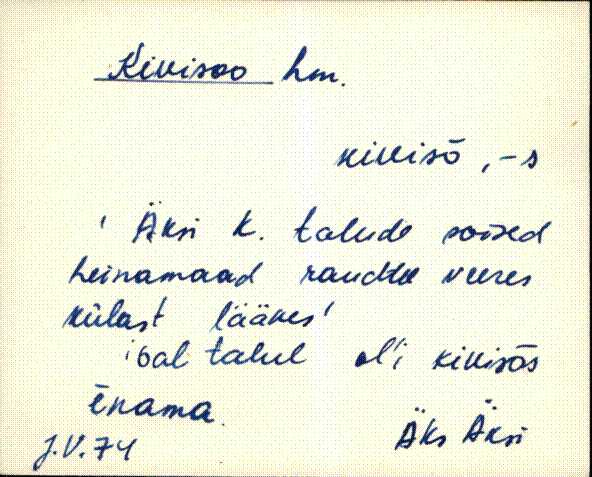 Kivisoo hm.
kivisō, -s
' Äksi k. talude soised
heinamaad raudtee veeres
külast läänes '
igal talul oĺi kivisōs
ēnama.
J.V. 74
Äks Äksi